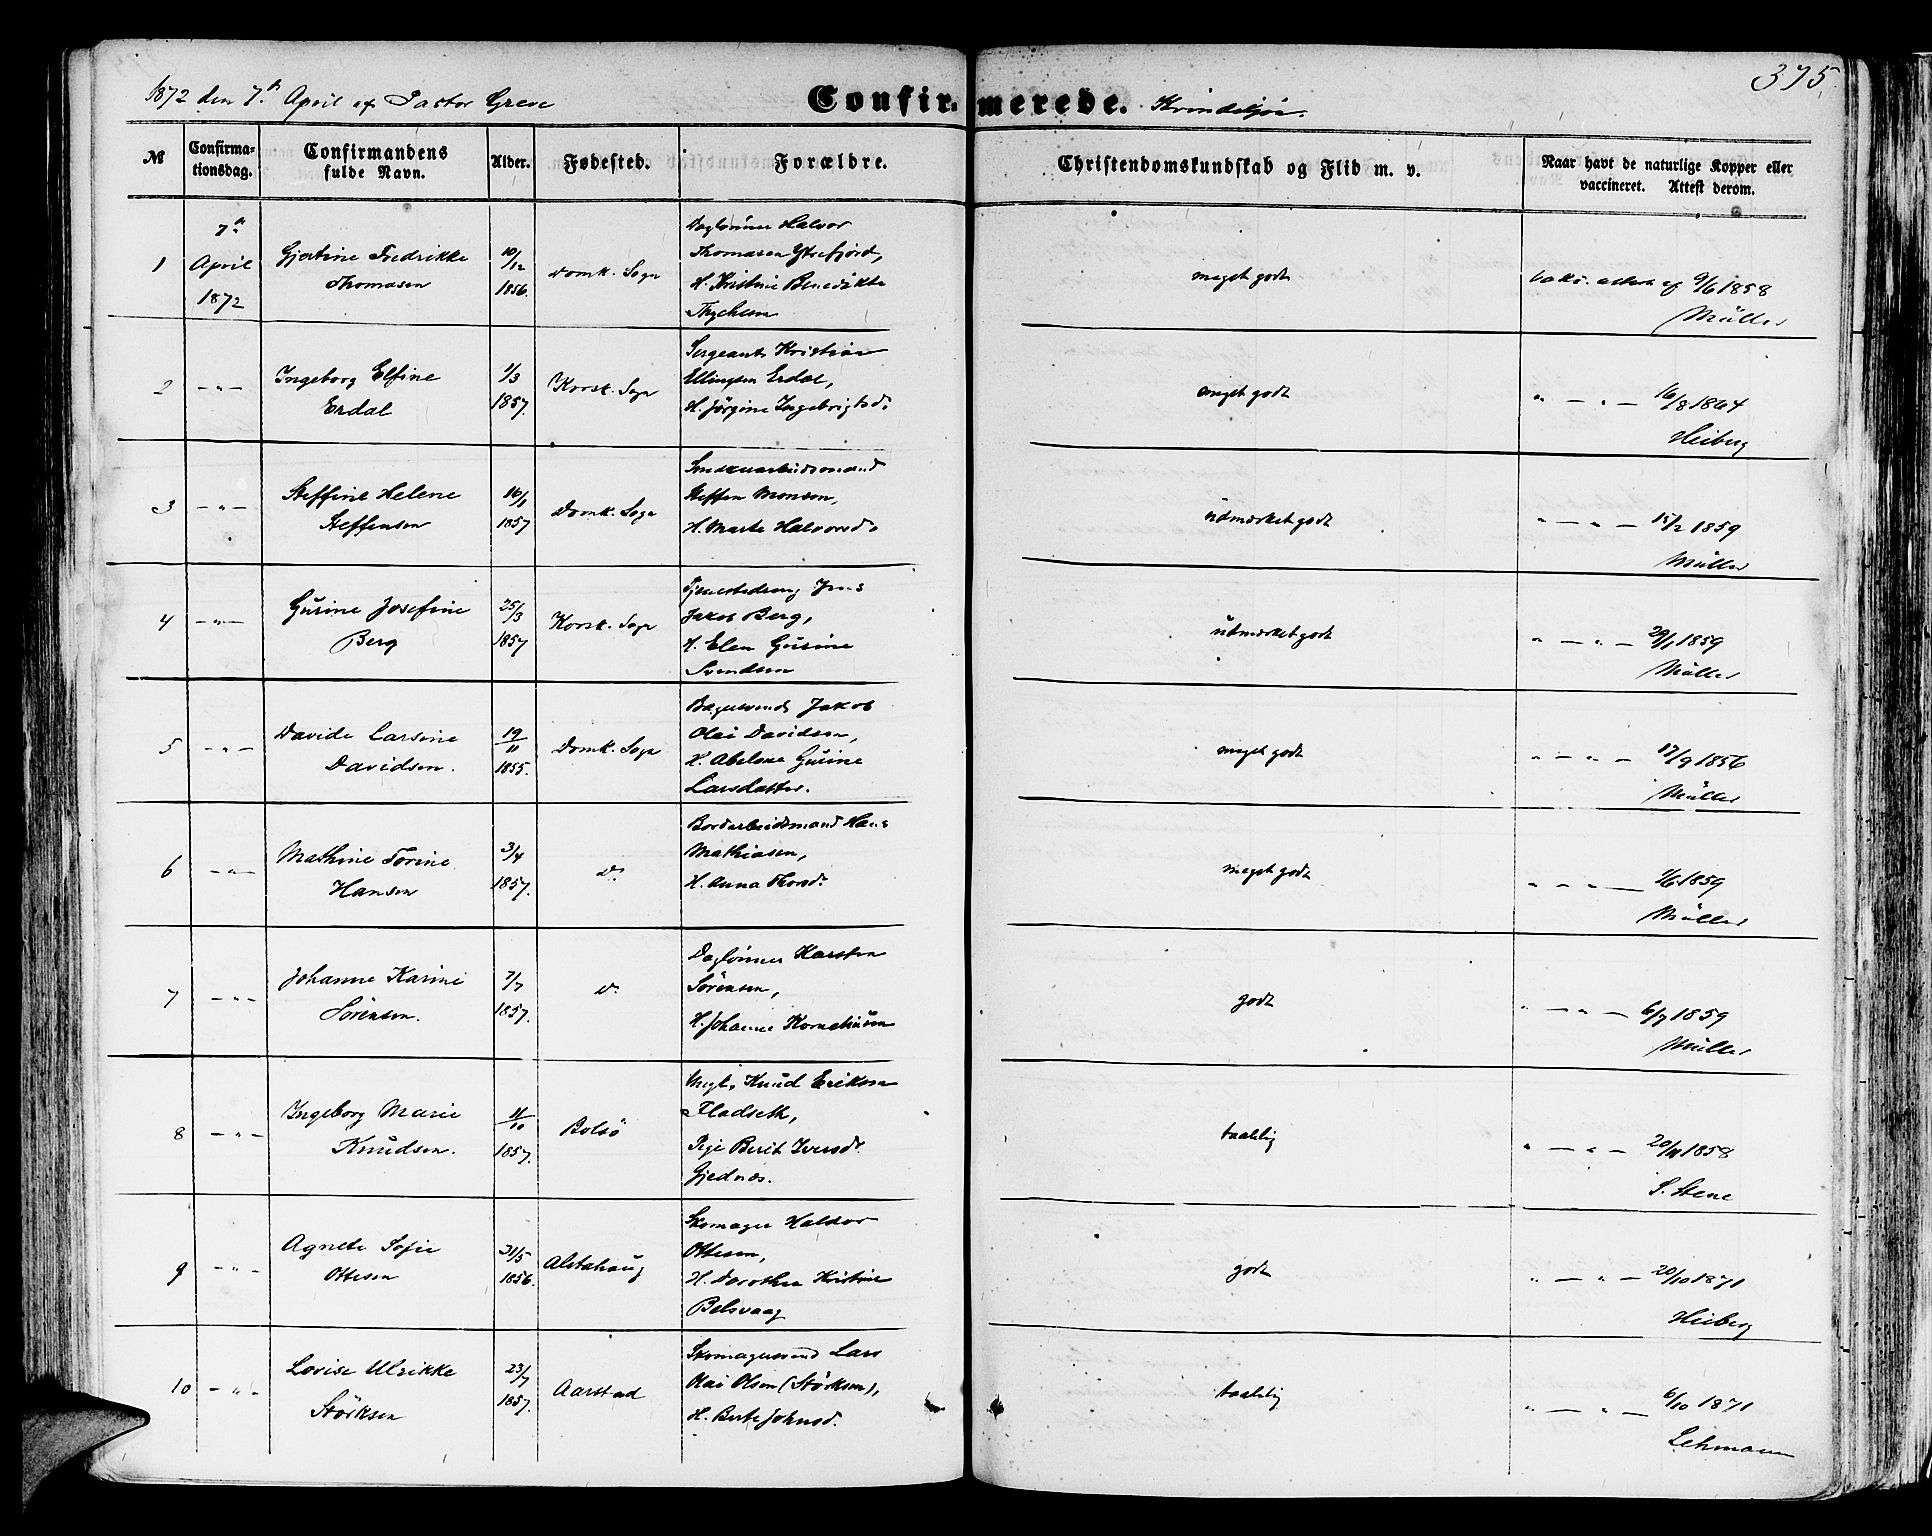 375.
1872 den 7de April af Pastor Greve
Confirmerede. Kvindekjøn.
№
Confirmationsdag.
Confirmandens fulde Navn.
Alder.
Fødested.
Forældre.
Christendomskundskab og Flid m. v.
Naar havt de naturlige Kopper eller vaccineret. Attest derom.
1
7de April 1872
Gjertine Fredrikke
Thomasen
10/12 1856.
Domk. Sogn
Daglønner Halvor
Thomasen Ytrefjord,
H. Kristine Benedikte
meget godt
9/6 1858
Müller
2
— „ —
Ingeborg Elfine
Erdal
1/3 1857.
Korsk. Sogn
Sergeant Kristian
Ellingsen Erdal,
H. Jørgine Ingebrigtsd.
meget godt
„ — „ — 16/8 1864
Heiberg
3
— „ —
Steffine Helene
Steffensen
16/1 1857
Domk. Sogn
Steffen Monsen,
H. Marte Halvorsd.
udmærket godt
„ — „ — 15/2 1859
Müller
4
— „ —
Gurine Josefine
Berg
25/3 1857
Korsk. Sogn
Tjenestedreng Jens
Jakob Berg,
H. Elen Gurine
Svendsen
udmærket godt
„ — „ — 29/1 1859
Müller
5
— „ —
Davide Larsine
Davidsen.
19/11 1855.
Domk. Sogn
Bagersvend Jakob
Olai Davidsen,
H. Abelone Gurine
Larsdatter.
meget godt
„ — „ — 17/9 1856
Müller
6
— „ —
Mathine Torine
Hansen
3/4 1857.
do
Bordarbeidsmand Hans
Mathiasen,
H. Anna Thorsd.
meget godt
1859
Müller
7
— „ —
Johanne Karine
Sørensen.
7/7 1857.
do
Daglønner Karsten
Sørensen,
H. Johanne Korneliusen
godt
„ — „ — 6/7 1859
Müller
8
— „ —
Ingeborg Marie
Knudsen.
11/10 1857.
Bolsø
Ungk. Knud Eriksen
Fladseth,
Pige Berit Iversd.
Gjednæs.
taalelig
„ — „ — 20/11 1858
S. Stene
9
— „ —
Agnete Sofie
Ottesen
31/5 1856.
Alstahaug
Skomager Haldor
Ottesen,
H. Dorothea Kristine
Belsvaag
godt
„ — „ — 20/10 1871
Heiberg
10
— „ —
Lovise Ulrikke
Størksen
23/7 1857.
Aarstad
Skomagersvend Lars
Olai Olsen (Størksen),
H. Berte Johnsd.
taalelig
„ — „ — 6/10 1871
Lehmann